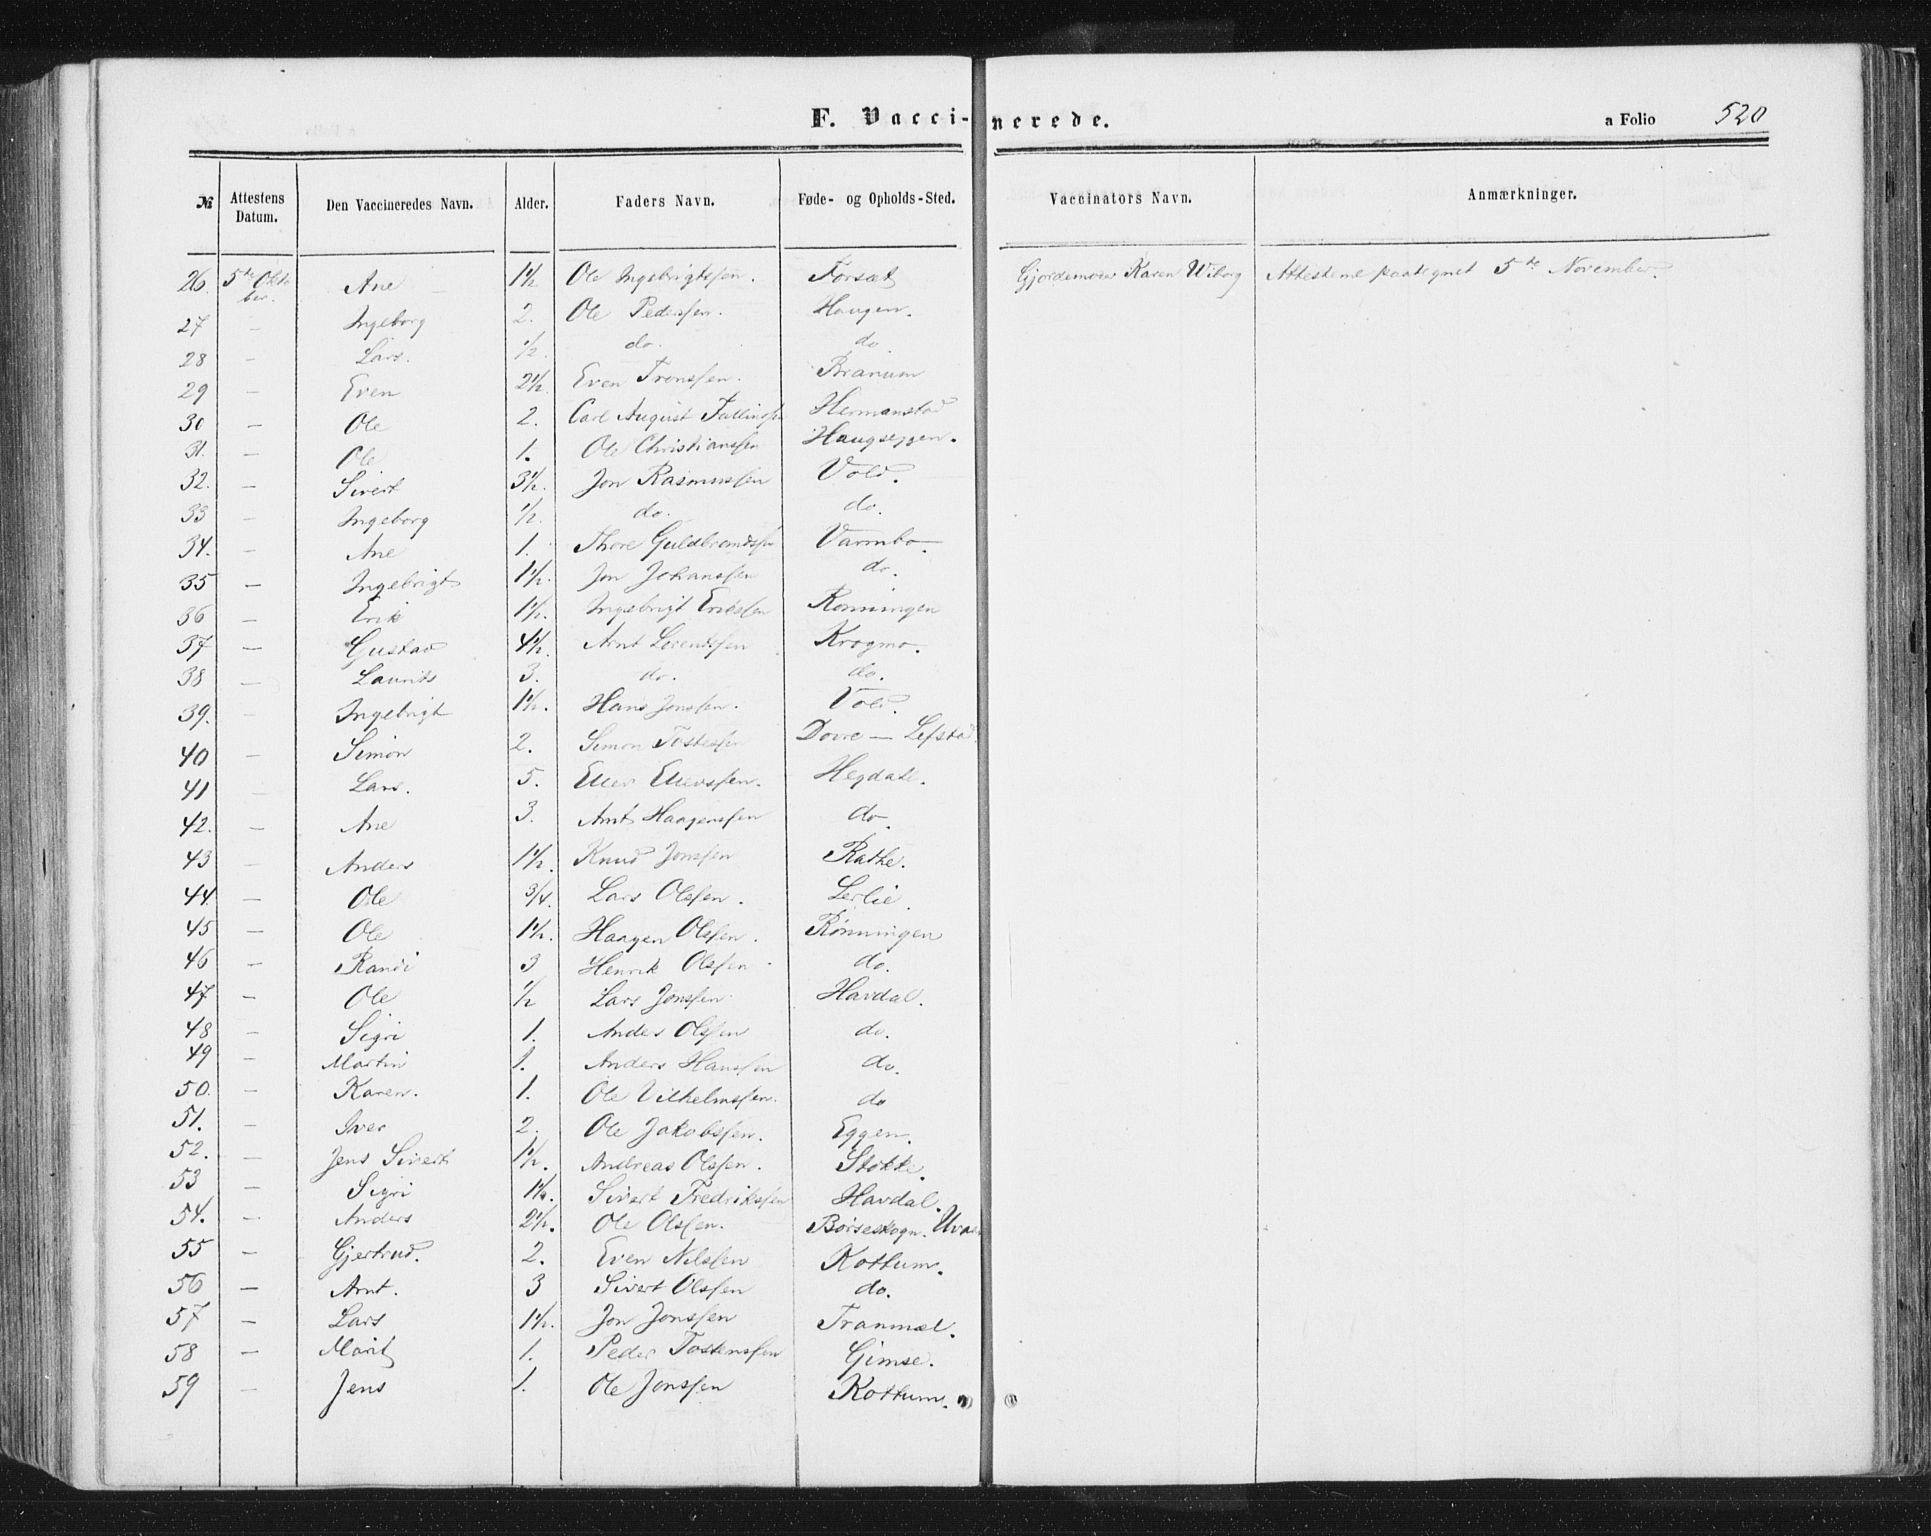 F. Vacci-nerede.
a Folio 520
№ Attestens Datum. Den Vaccineredes Navn. Alder. Faders Navn. Føde- og Opholds-Sted. Vaccinators Navn. Anmærkninger.
26. 5te Okto ber. Ane 1½ Ole Ingebrigtsen. Forsæt Gjordemoer Karen Wiborg Attesterne paategnet 5te November.
27 — Ingeborg 2. Ole Pedersen. Haugen.
28 — Lars. ½. do. do.
29 — Even 2½. Even Tronsen. Branum
30 — Ole 2. Carl August Hermanstad
31. — Ole 1. Ole Christiansen Haugseggen.
32. — Sivert 3½. Jon Rasmussen Vold.
33 — Ingeborg ½. do. do.
34. — Ane 1. Thore Guldbrandsen Varmbo.
35 — Ingebrigt 1½. Jon Johansen do.
36 — Erik 1½. Ingebrigt Eriksen Rønningen
37 — Gustav 4½. Arnt Lorentsen Krogmo.
38 — Laurits 3. do. do.
39. — Ingebrigt 1½. Hans Jonsen. Vold.
40 — Simon 2. Simon Dovre —
41 — Lars. 5. Ellev Ellevsen. Hegdale.
42. — Ane 3. Arnt Haagensen do.
43 — Anders 1½. Knud Jonsen Rathe.
44. — Ole 3/4. Lars Olsen. Lerlie.
45 — Ole 1½. Haagen Olsen. Rønningen
46 — Randi 3 Henrik Olsen do.
47 — Ole ½ Lars Jonsen. Havdal.
48 — Sigri 1. Anders Olsen do.
49 — Martin 1. Anders Hansen do.
50. — Karen. 1. Ole Vilhelmsen. do
51. — Iver 2. Ole Jakobsen. Eggen.
52. — Jens Sivert 1½. Andreas Olsen. Stokke.
53 — Sigri 1¼. Sivert Fredriksen Havdal.
54. — Anders 2½. Ole Olsen. Børseskogn.
55 — Gjertrud. 2. Even Nilsen Kottum.
56 — Arnt. 3 Sivert Olsen do.
57 — Lars 1½. Jon Jonsen Tranmæl.
58 — Marit 1. Peder Tostensen Gimse.
59 — Jens 1. Ole Jonsen Kottum.